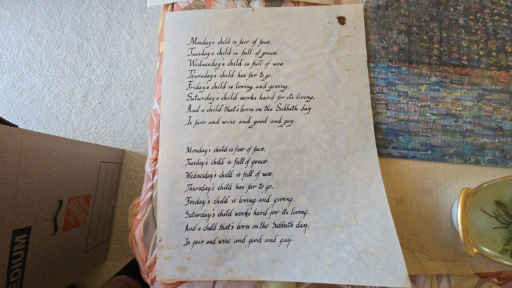 Monday's child is fair of face,
Tuesday's child is full of grace,
Wednesday's child is full of woe,
Thursday's child has far to go.
Friday's child is loving and giving,
Saturday's child works hard for its living,
And a child that's born on the Sabbath day
Is fair and wise and good and gay.
Monday's child is fair of face,
Tuesday's child is full of grace,
Wednesday's child is full of woe,
Thursday's child has far to go.
Friday's child is loving and giving,
Saturday's child works hard for its living,
And a child that's born on the Sabbath day,
Is fair and wise and good and gay.
MEDIUM